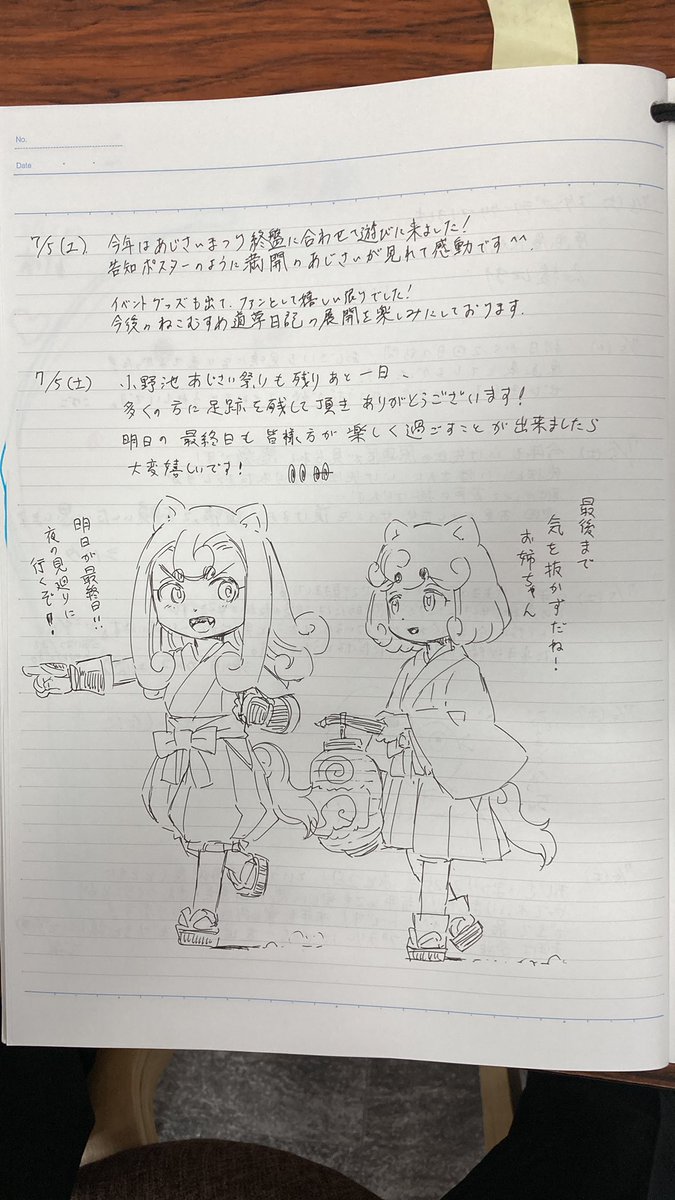 No.
Date
7/5(土) 今年はあじさいまつり終盤に合わせて遊びに来ました!
告知ポスターのように満開のあじさいが見れて感動です^^.
イベントグッズも出て、ファンとして嬉しい限りでした!
今後のねこむすめ道草日記の展開を楽しみにしております.
7/5(土) 小野池あじさい祭りも残りあと一日、
多くの方に足跡を残して頂きありがとうございます!
明日の最終日も皆様方が楽しく過ごすことが出来ましたら
大変嬉しいです!
明日が最終日!!
夜の見廻りに
行くぞ!!
最後まで
気を抜かずだね!
お姉ちゃん